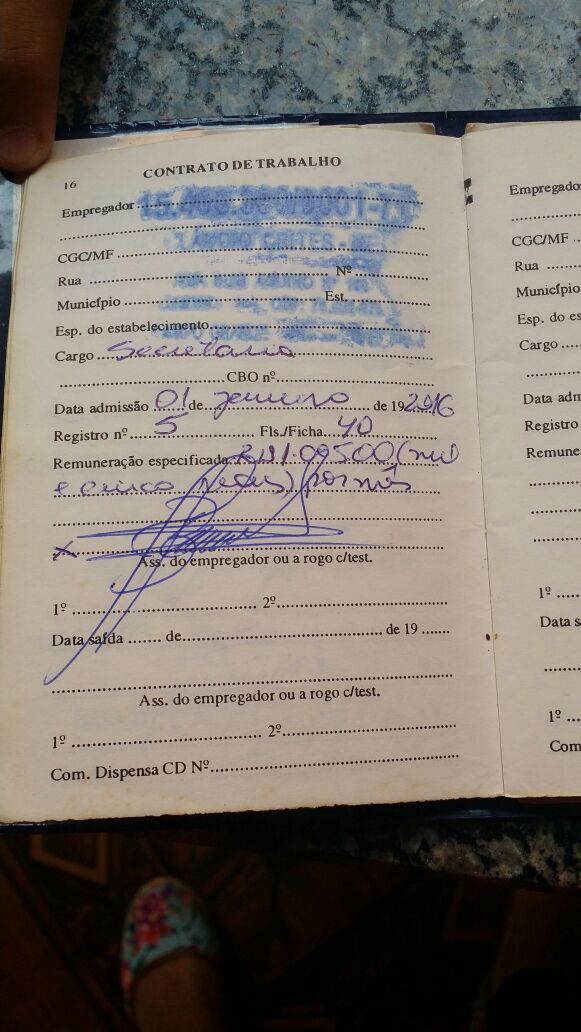 16
CONTRATO DE TRABALHO
Empregador
CGC/MF
Rua Nº
Município Est.
Esp. do estabelecimento
Cargo Secretária
CBO nº
Data admissão 01 de janeiro de 192016
Registro nº 5 Fls./Ficha 40
Remuneração especificada (mil
e cinco reais) por mês
x
Ass. do empregador ou a rogo c/test.
1º 2º
Data saída de de 19
Ass. do empregador ou a rogo c/test.
1º 2º
Com. Dispensa CD Nº
Empregado
CGC/MF
Rua
Município
Esp. do es
Cargo
Data adm
Registro
Remune
1º
Data s
1º
Com